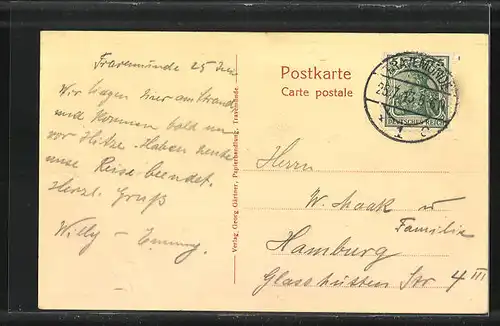 Travemünde 25 Juli
Wir liegen hier am Strand
und kommen bald um
vor Hitze. Haben heute
unse Reise beendet.
Herzl. Gruß
Willy – Emmy.
Verlag, Georg Gärtner, Papierhandlung, Travemünde.
Postkarte
Carte postale
DEUTSCHES REICH
1 c
Herrn
W. Maak u
Familie
Hamburg
Glasshütten Str 4 III